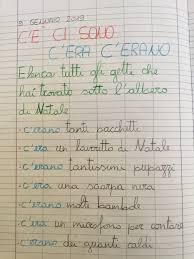 9 GENNAIO 2019
C'È CI SONO
C'ERA C'ERANO
Elenca tutti gli oggetti che
hai trovato sotto l'albero
di Natale
• c'erano tanti pacchetti
• c'era un lavoretto di Natale
• c'erano tantissimi pupazzi
• c'era una sciarpa nera
• c'erano molte bambole
• c'era un microfono per cantare
• c'erano dei guanti caldi